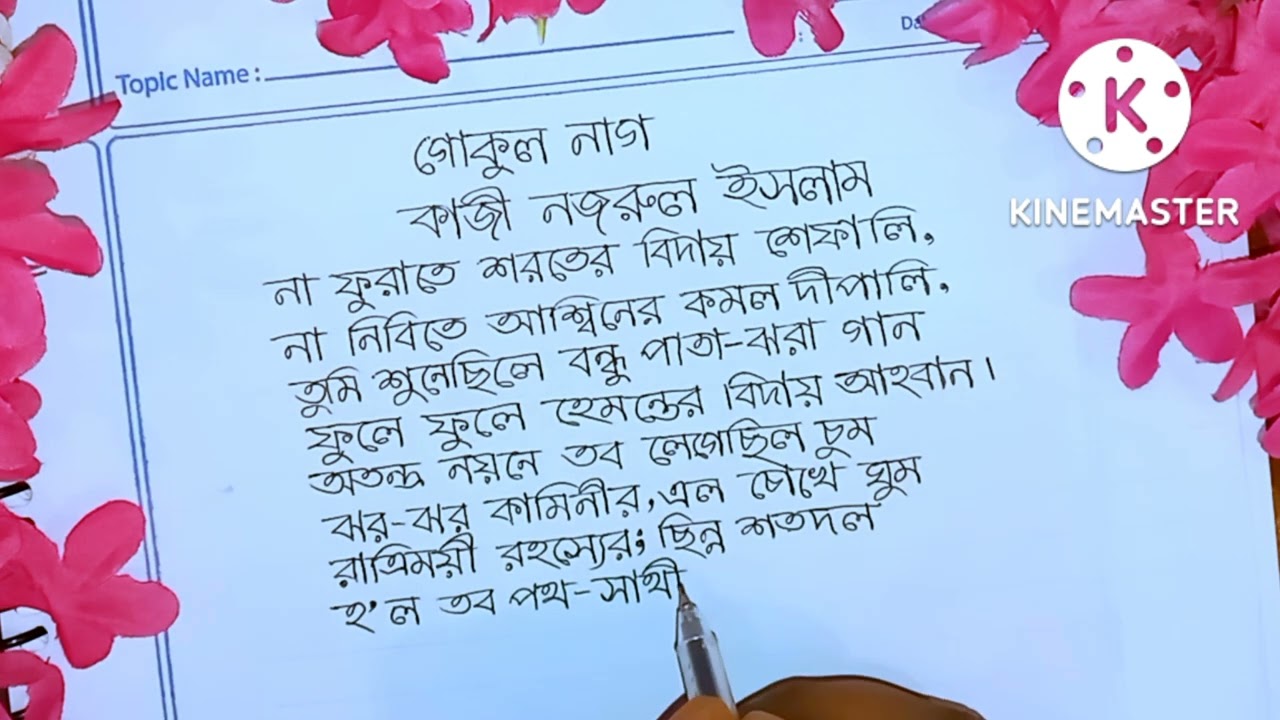 Topic Name :
Da
K
KINEMASTER
গোকুল নাগ
কাজী নজরুল ইসলাম
না ফুরাতে শরতের বিদায় শেফালি,
না নিবিতে আশ্বিনের কমল দীপালি,
তুমি শুনেছিলে বন্ধু পাতা-ঝরা গান
ফুলে ফুলে হেমন্তের বিদায় আহবান।
অতন্দ্র নয়নে তব লেগেছিল চুম
ঝর-ঝর কামিনীর, এল চোখে ঘুম
রাত্রিময়ী রহস্যের; ছিন্ন শতদল
হ'ল তব পথ-সাথী